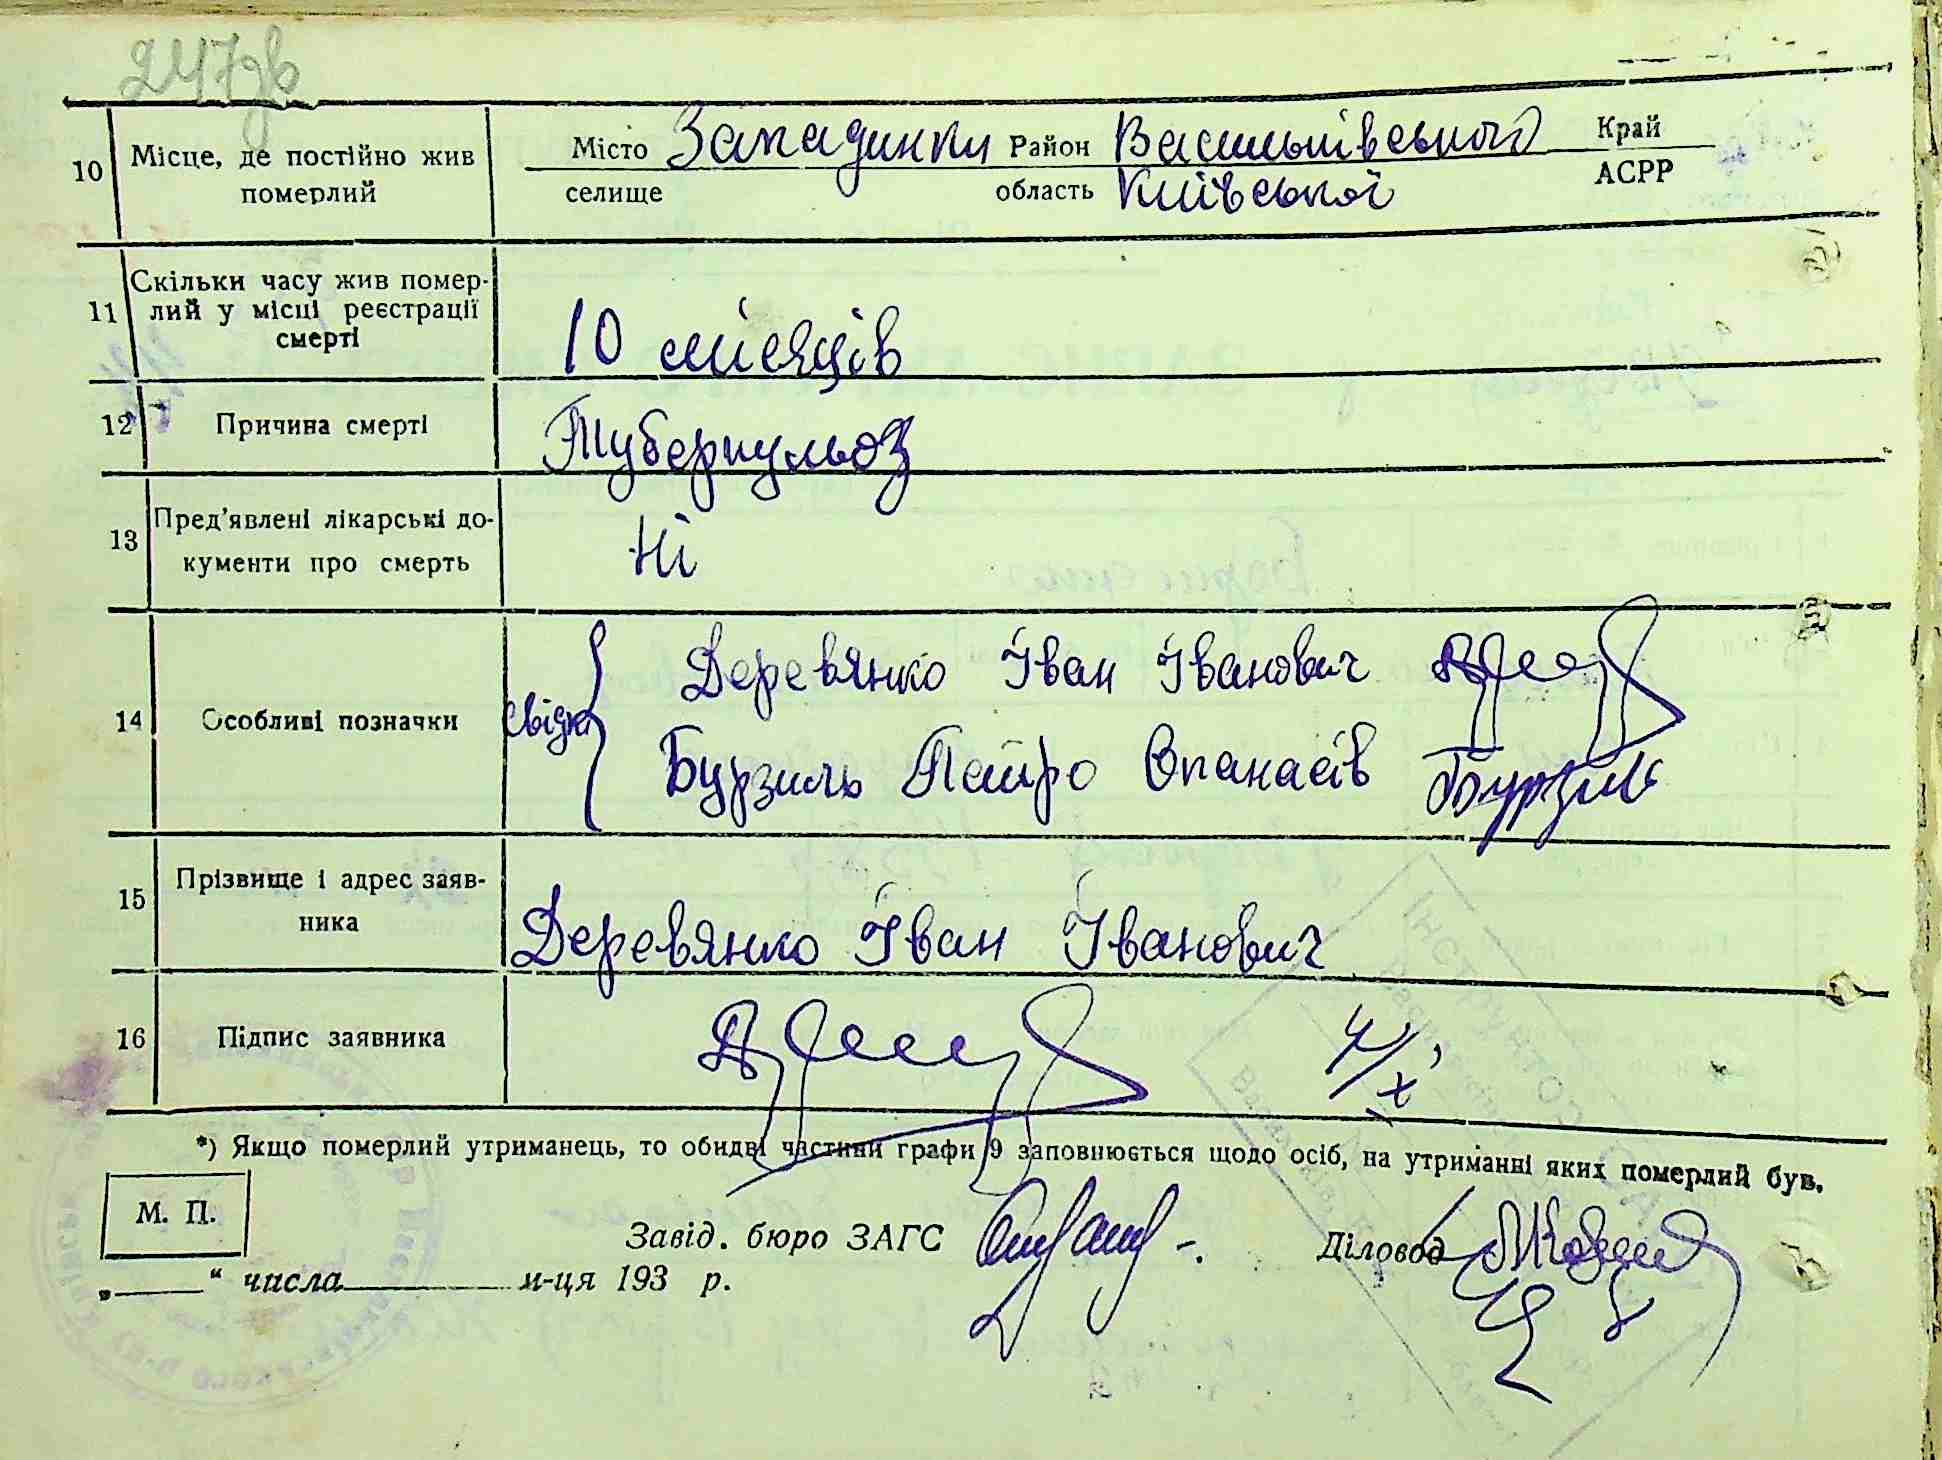 247зв
10 Місце, де постійно жив померлий Місто Западинки Район Васильківського Край
селище область Київської АСРР
11 Скільки часу жив помер-
лий у місці реєстрації
смерті 10 місяців
12 Причина смерті Туберкульоз
13 Пред'явлені лікарські до-
кументи про смерть Ні
14 Особливі позначки свідки Деревянко Іван Іванович
Бурзиль Петро Опанасів Бурзиль
15 Прізвище і адрес заяв-
ника Деревянко Іван Іванович
16 Підпис заявника 4/X
*) Якщо померлий утриманець, то обидві частини графи 9 заповнюється щодо осіб, на утриманні яких померлий був.
М. П.
Завід. бюро ЗАГС Діловод
„ “ числа м-ця 193 р.
ІНСТРУКТОР